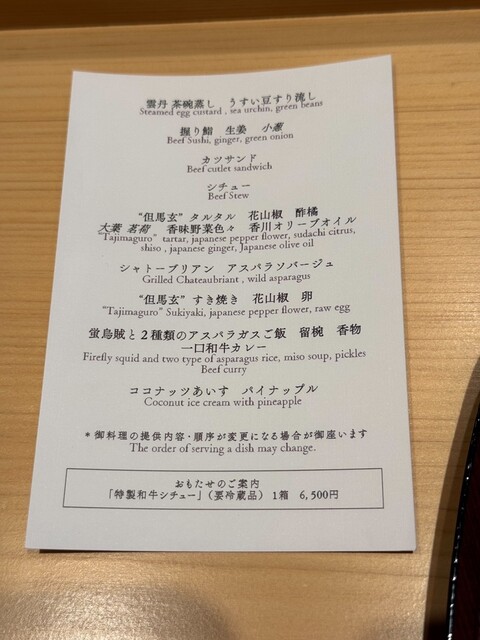 雲丹 茶碗蒸し うすい豆すり流し
Steamed egg custard , sea urchin, green beans
握り鮨 生姜 小葱
Beef Sushi, ginger, green onion
カツサンド
Beef cutlet sandwich
シチュー
Beef Stew
"但馬玄" タルタル 花山椒 酢橘
大葉 茗荷 香味野菜色々 香川オリーブオイル
"Tajimaguro" tartar, japanese pepper flower, sudachi citrus,
shiso , japanese ginger, Japanese olive oil
シャトーブリアン アスパラソバージュ
Grilled Chateaubriant , wild asparagus
"但馬玄" すき焼き 花山椒 卵
"Tajimaguro" Sukiyaki, japanese pepper flower, raw egg
蛍烏賊と2種類のアスパラガスご飯 留椀 香物
一口和牛カレー
Firefly squid and two type of asparagus rice, miso soup, pickles
Beef curry
ココナッツあいす パイナップル
Coconut ice cream with pineapple
*御料理の提供内容・順序が変更になる場合が御座います
The order of serving a dish may change.
おもたせのご案内
「特製和牛シチュー」(要冷蔵品) 1箱 6,500円